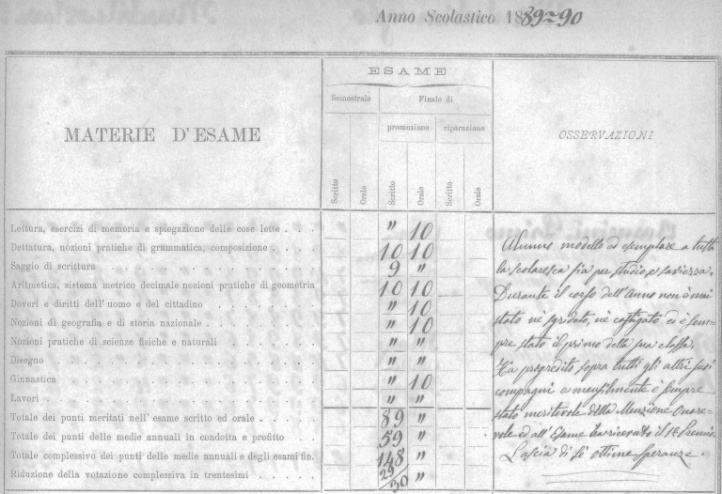 Anno Scolastico 1889-90
MATERIE D'ESAME
ESAME
OSSERVAZIONI
Semestrale
Finale di
promozione
riparazione
Scritto
Orale
Scritto
Orale
Scritto
Orale
Lettura, esercizi di memoria e spiegazione delle cose lette . . . . " 10
Dettatura, nozioni pratiche di grammatica, composizione . . . . 10 10
Saggio di scrittura . . . . 9 "
Aritmetica, sistema metrico decimale nozioni pratiche di geometria 10 10
Doveri e diritti dell'uomo e del cittadino . . . . " 10
Nozioni di geografia e di storia nazionale . . . . " 10
Nozioni pratiche di scienze fisiche e naturali " "
Disegno . . . . " "
Ginnastica . . . . " 10
Lavori . . . . " "
Totale dei punti meritati nell'esame scritto ed orale . . . . 89 "
Totale dei punti delle medie annuali in condotta e profitto 59 "
Totale complessivo dei punti delle medie annuali e degli esami fin. 148 "
Riduzione della votazione complessiva in trentesimi . . . . 29/30 "
Alunno modello ed esemplare a tutta
la scolaresca sia per studio, e saviezza.
Durante il corso dell'Anno non è mai
stato nè sgridato, nè castigato ed è sem-
pre stato il primo della sua classe.
Ha progredito sopra tutti gli altri suoi
compagni e mensilmente è sempre
stato meritevole della Menzione Onore-
vole ed all'Esame ha ricevuto il 1º Premio.
Lascia di sè ottime speranze.